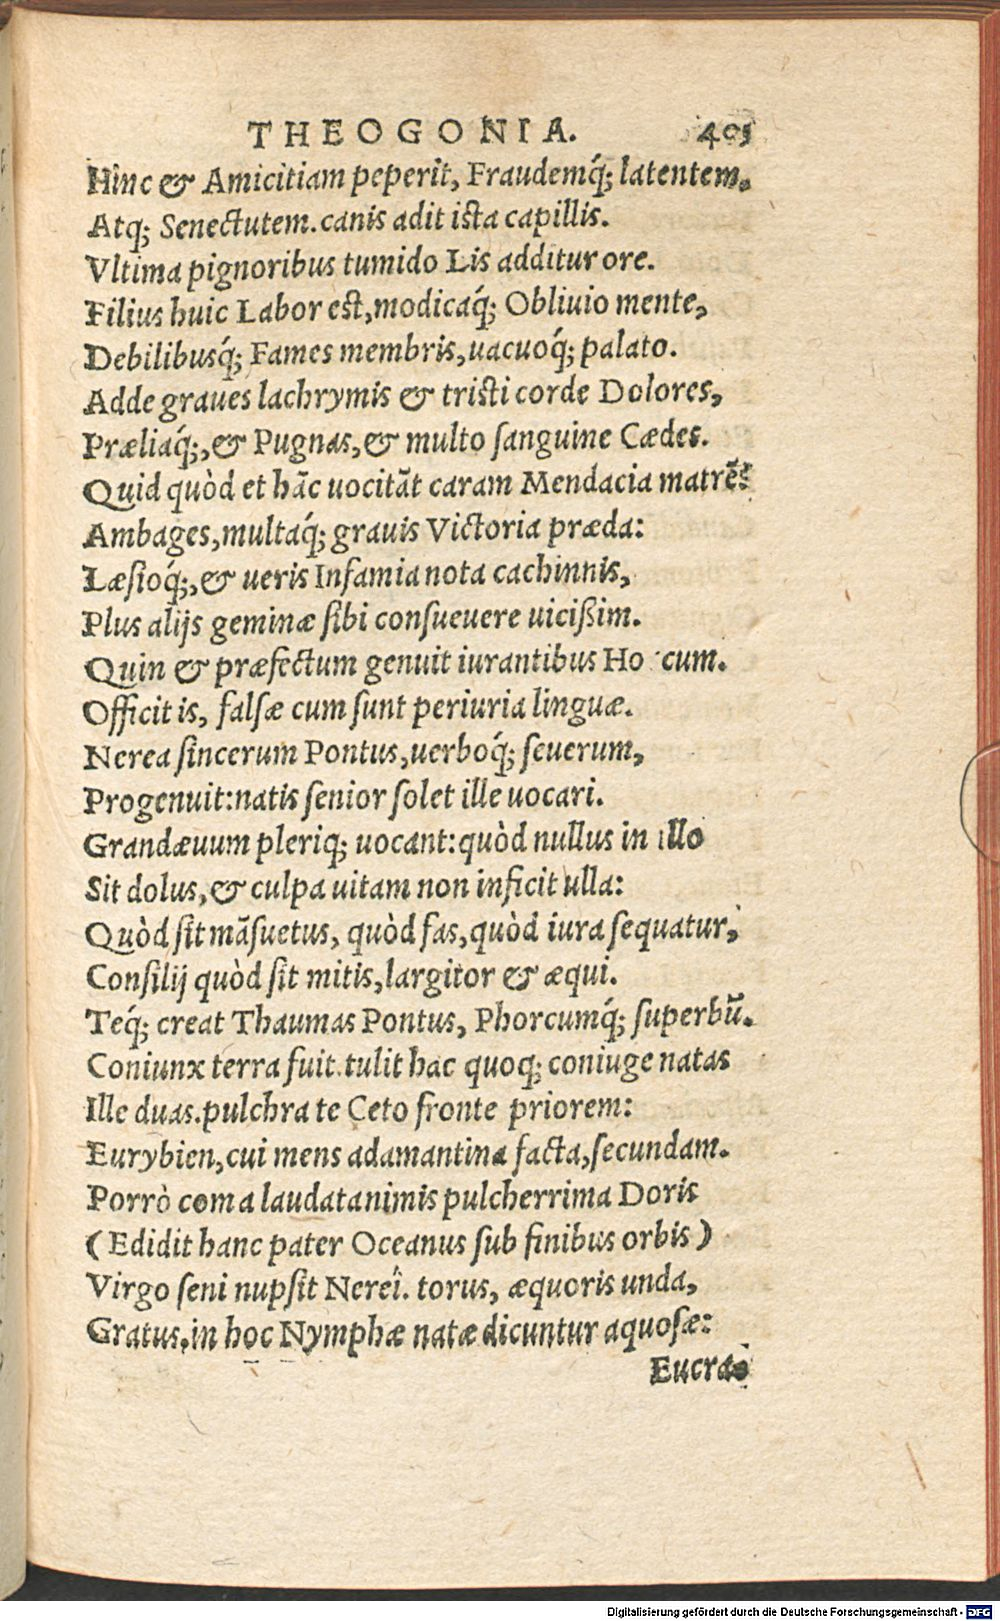 THEOGONIA. 405
Hinc & Amicitiam peperit, Fraudemq́; latentem.
Atq; Senectutem. canis adit ista capillis.
Vltima pignoribus tumido Lis additur ore.
Filius huic Labor est, modicaq́; Obliuio mente,
Debilibusq́; Fames membris, uacuoq́; palato.
Adde graues lachrymis & tristi corde Dolores,
Præliaq́;, & Pugnas, & multo sanguine Cædes.
Quid quòd et hāc uocitāt caram Mendacia matrē?
Ambages, multaq́; grauis Victoria præda:
Læsioq́;, & ueris Infamia nota cachinnis,
Plus alijs geminæ sibi consueuere uicißim.
Quin & præfectum genuit iurantibus Ho cum.
Officit is, falsæ cum sunt periuria linguæ.
Nerea sincerum Pontus, uerboq́; seuerum,
Progenuit: natis senior solet ille uocari.
Grandæuum pleriq; uocant: quòd nullus in illo
Sit dolus, & culpa uitam non inficit ulla:
Quòd sit māsuetus, quòd fas, quòd iura sequatur,
Consilij quòd sit mitis, largitor & æqui.
Teq́; creat Thaumas Pontus, Phorcumq́; superbū.
Coniunx terra fuit. tulit hac quoq; coniuge natas
Ille duas. pulchra te Ceto fronte priorem:
Eurybien, cui mens adamantina facta, secundam.
Porrò coma laudatanimis pulcherrima Doris
(Edidit hanc pater Oceanus sub finibus orbis)
Virgo seni nupsit Nereî. torus, æquoris unda,
Gratus, in hoc Nymphæ natæ dicuntur aquosæ:
Eucra-
Digitalisierung gefördert durch die Deutsche Forschungsgemeinschaft - DFG